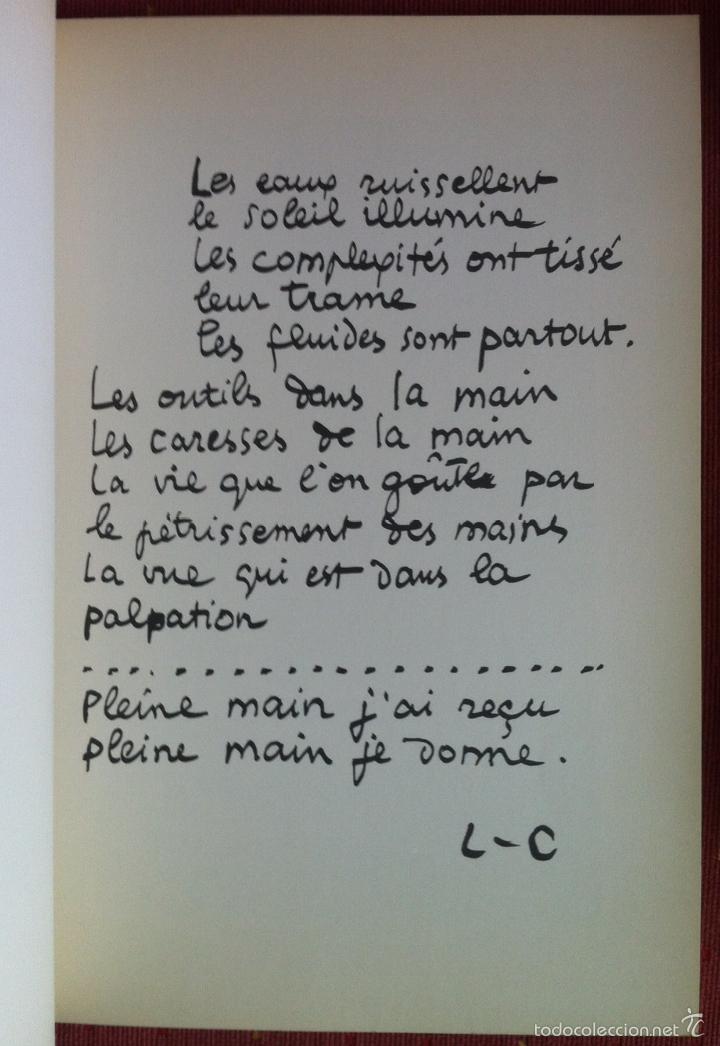 Les eaux ruissellent
le soleil illumine
les complexités ont tissé
leur trame
les fluides sont partout.
Les outils dans la main
Les caresses de la main
La vie que l'on goûte par
le pétrissement des mains
La vue qui est dans la
palpation
... . . . . . . . . . . . . . . . . . . . .
Pleine main j'ai reçu
pleine main je donne.
L-C
todocoleccion.net
TC